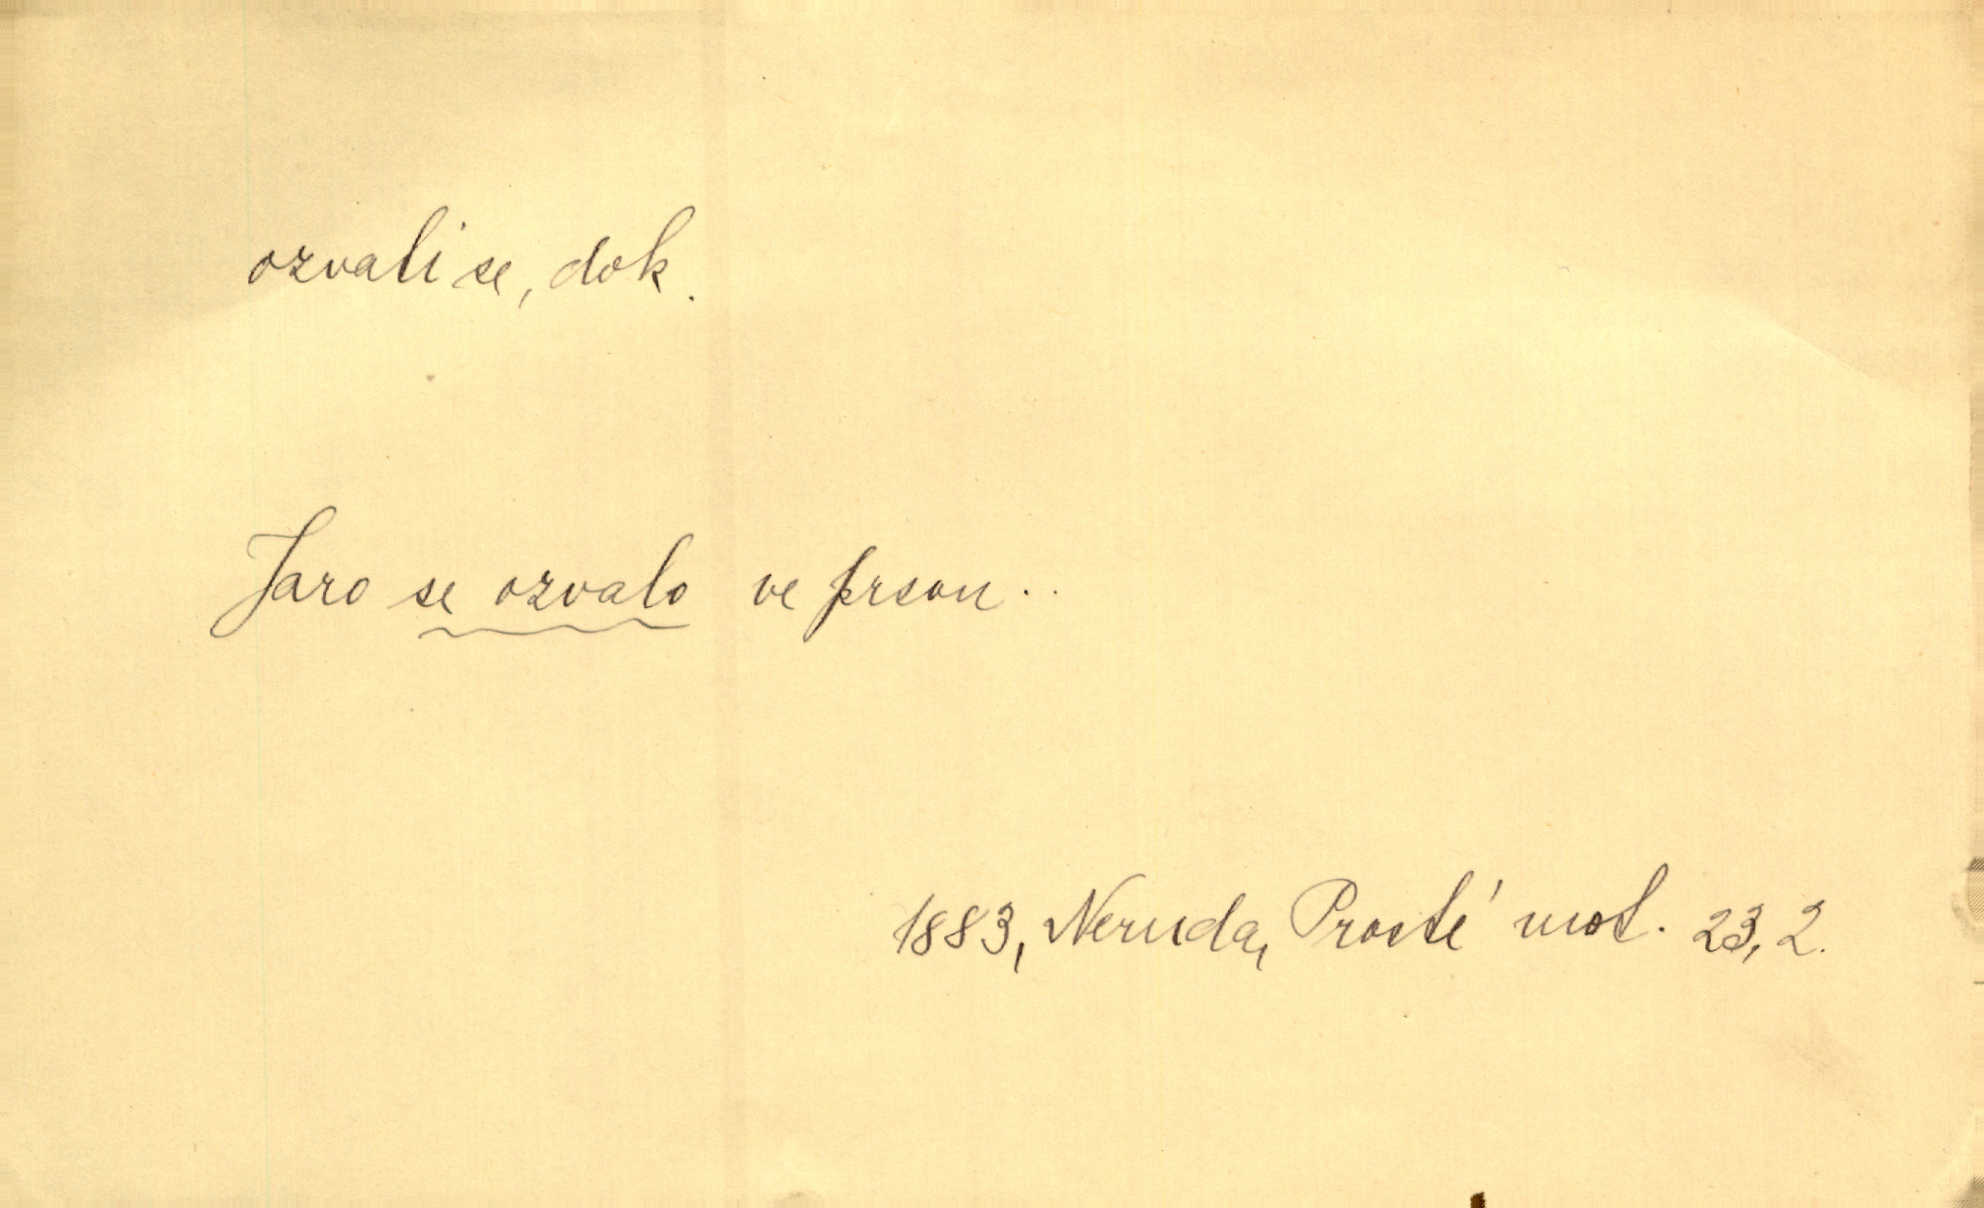 ozvati se, dok.
Jaro se ozvalo ve prsou..
1883, Neruda, Prosté mot. 23, 2.